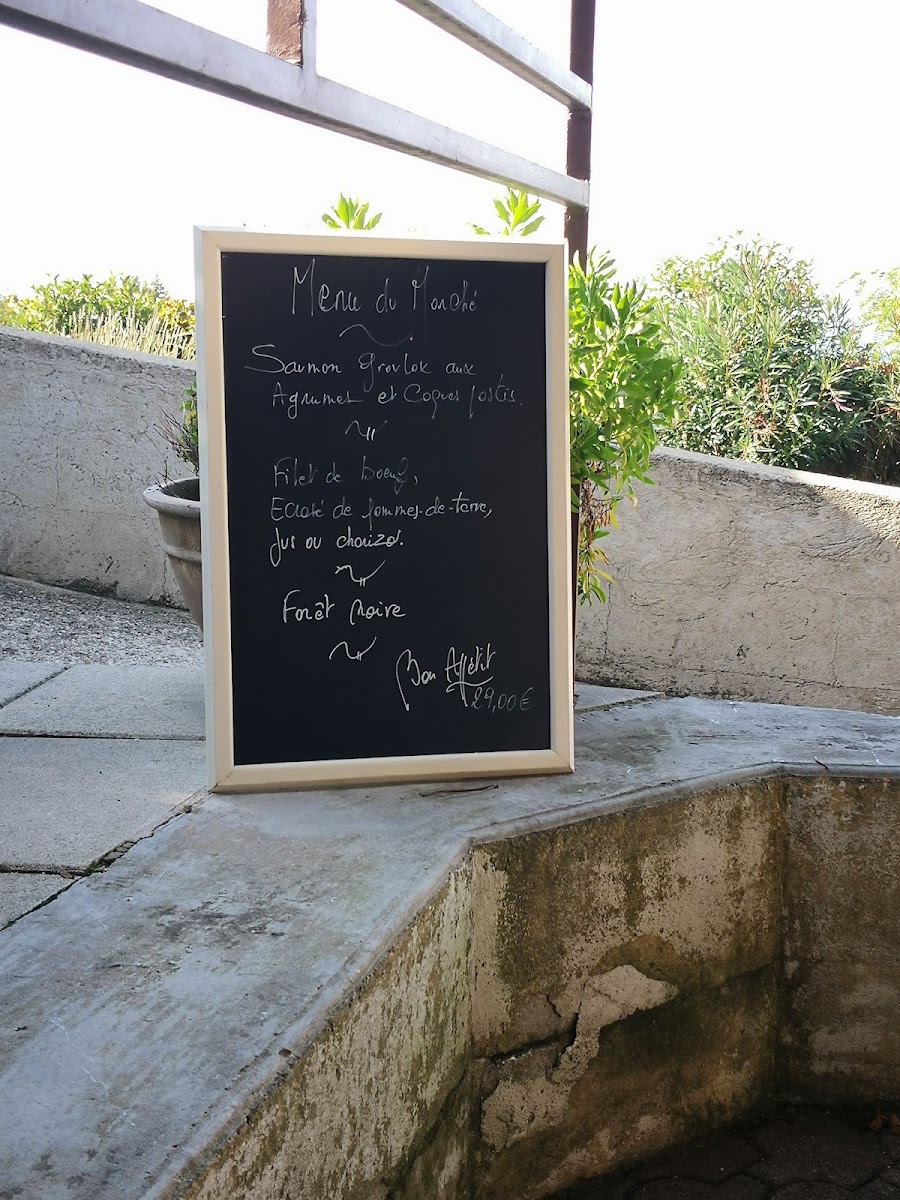 Menu du Marché
Saumon Gravlax aux
Agrumes et Copeaux
Filet de boeuf,
Ecrasé de pommes-de-terre,
Jus au chorizo.
Forêt Noire
Bon Appétit
29,00€